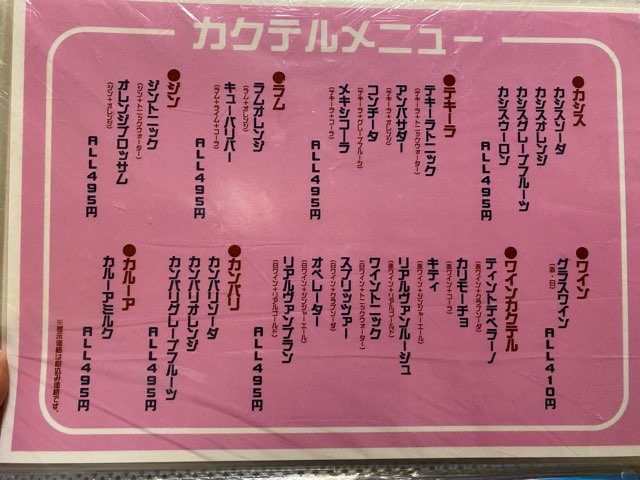 カクテルメニュー
●カシス
カシスソーダ
カシスオレンジ
カシスグレープフルーツ
カシスウーロン
ALL495円
●テキーラ
テキーラトニック
(テキーラ+トニックウォーター)
アンバサダー
(テキーラ+オレンジ)
コンチータ
(テキーラ+グレープフルーツ)
メキシコーラ
(テキーラ+コーラ)
ALL495円
●ラム
ラムオレンジ
(ラム+オレンジ)
キューバリバー
(ラム+ライム+コーラ)
ALL495円
●ジン
ジントニック
(ジン+トニックウォーター)
オレンジブロッサム
(ジン+オレンジ)
ALL495円
●ワイン
グラスワイン
(赤・白)
ALL410円
●ワインカクテル
ティントデベラーノ
(赤ワイン+クランソーダ)
カリモーチョ
(赤ワイン+コーラ)
キティ
(赤ワイン+ジンジャーエール)
リアルヴァンルージュ
(赤ワイン+リアルゴールド)
ワイントニック
(白ワイン+トニックウォーター)
スプリッツァー
(白ワイン+クランソーダ)
オペレーター
(白ワイン+ジンジャーエール)
リアルヴァンブラン
(白ワイン+リアルゴールド)
ALL495円
●カンパリ
カンパリソーダ
カンパリオレンジ
カンパリグレープフルーツ
ALL495円
●カルーア
カルーアミルク
ALL495円
※表示価格は税込み価格です。